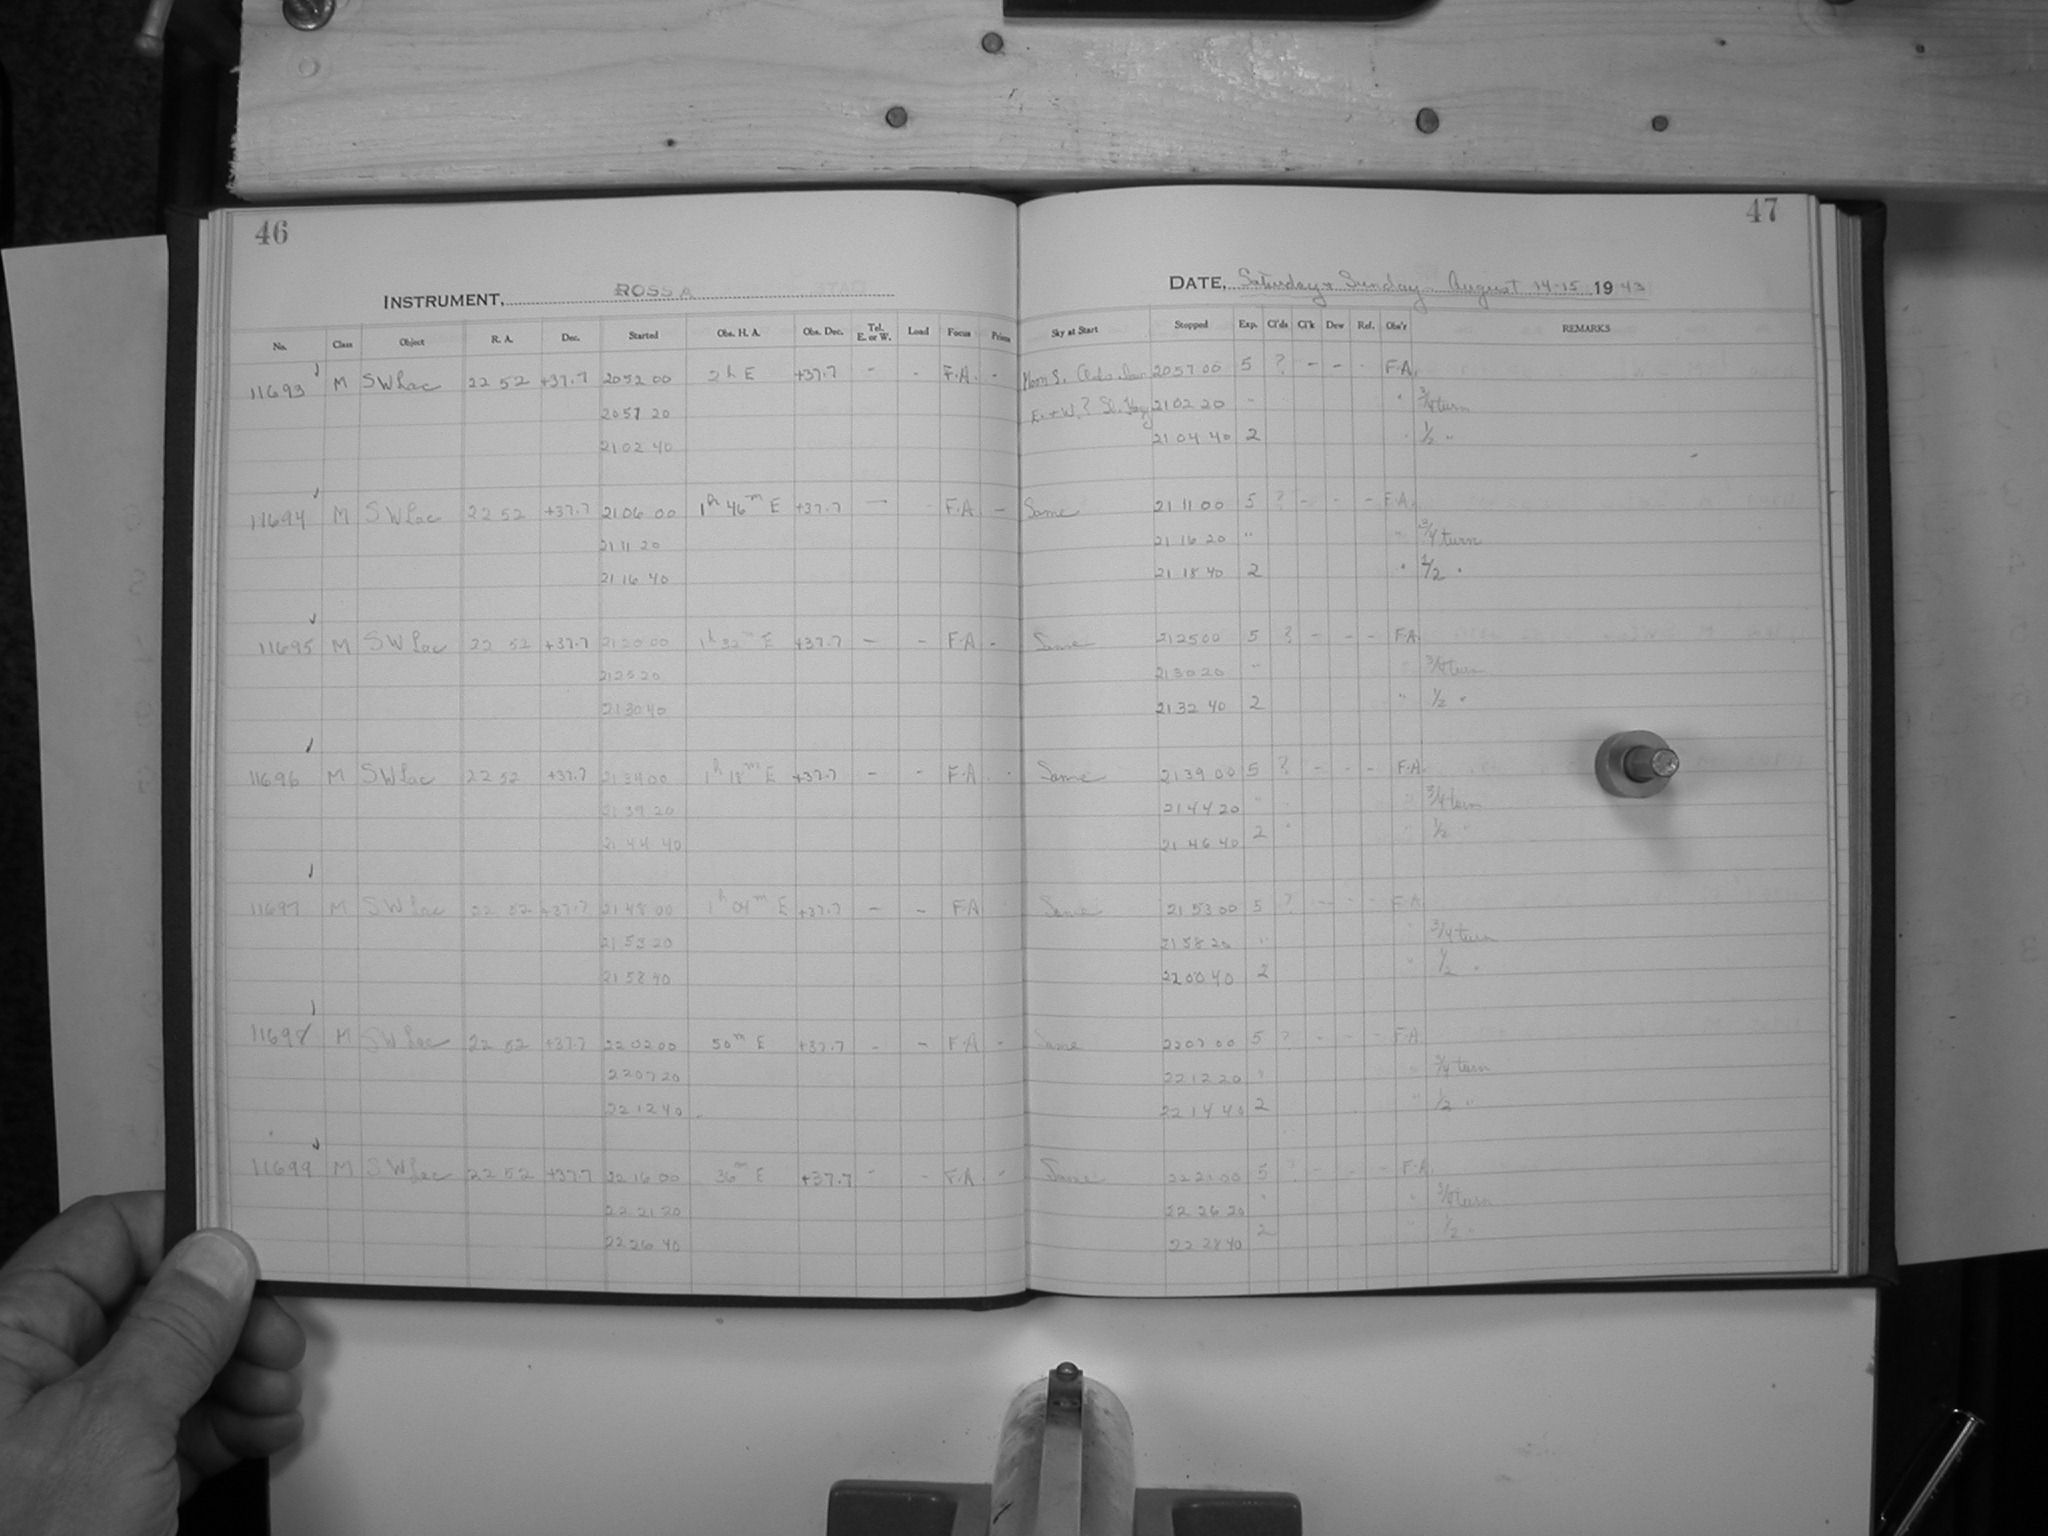 46
INSTRUMENT, ROSS A
No. Class Object R. A. Dec. Started Obs. H. A. Obs. Dec. Tel. E. or W. Load Focus Prism
11693 M SW Lac 22 52 +37.7 20 52 00 2h E +37.7 - - F.A. -
20 57 20
21 02 40
11694 M SW Lac 22 52 +37.7 21 06 00 1h 46m E +37.7 - - F.A. -
21 11 20
21 16 40
11695 M SW Lac 22 52 +37.7 21 20 00 1h 32m E +37.7 - - F.A -
21 25 20
21 30 40
11696 M SW Lac 22 52 +37.7 21 34 00 1h 18m E +37.7 - - F.A. -
21 39 20
21 44 40
11697 M SW Lac 22 52 +37.7 21 48 00 1h 04m E +37.7 - - F.A
21 53 20
21 58 40
11698 M SW Lac 22 52 +37.7 22 02 00 50m E +37.7 - - F.A -
22 07 20
22 12 40
11699 M SW Lac 22 52 +37.7 22 16 00 36m E +37.7 - - F.A. -
22 21 20
22 26 40
47
DATE, Saturday & Sunday August 14-15 1943
Sky at Start Stopped Exp. Cl'ds Cl'k Dew Ref. Obs'r REMARKS
20 57 00 5 ? - - - F.A.
E. + W.? Sl. Hazy 21 02 20 " " 3/4 turn
21 04 40 2 " 1/2 "
Same 21 11 00 5 ? - - - F.A.
21 16 20 " " 3/4 turn
21 18 40 2 " 1/2 "
Same 21 25 00 5 ? - - - F.A.
21 30 20 " " 3/4 turn
21 32 40 2 " 1/2 "
Same 21 39 00 5 ? - - - F.A.
21 44 20 " " 3/4 turn
21 46 40 2 " 1/2 "
Same 21 53 00 5 ? - - - F.A
21 58 20 " " 3/4 turn
22 00 40 2 " 1/2 "
Same 22 07 00 5 ? - - - F.A
22 12 20 " " 3/4 turn
22 14 40 2 " 1/2 "
Same 22 21 00 5 ? - - - F.A.
22 26 20 " " 3/4 turn
22 28 40 2 " 1/2 "